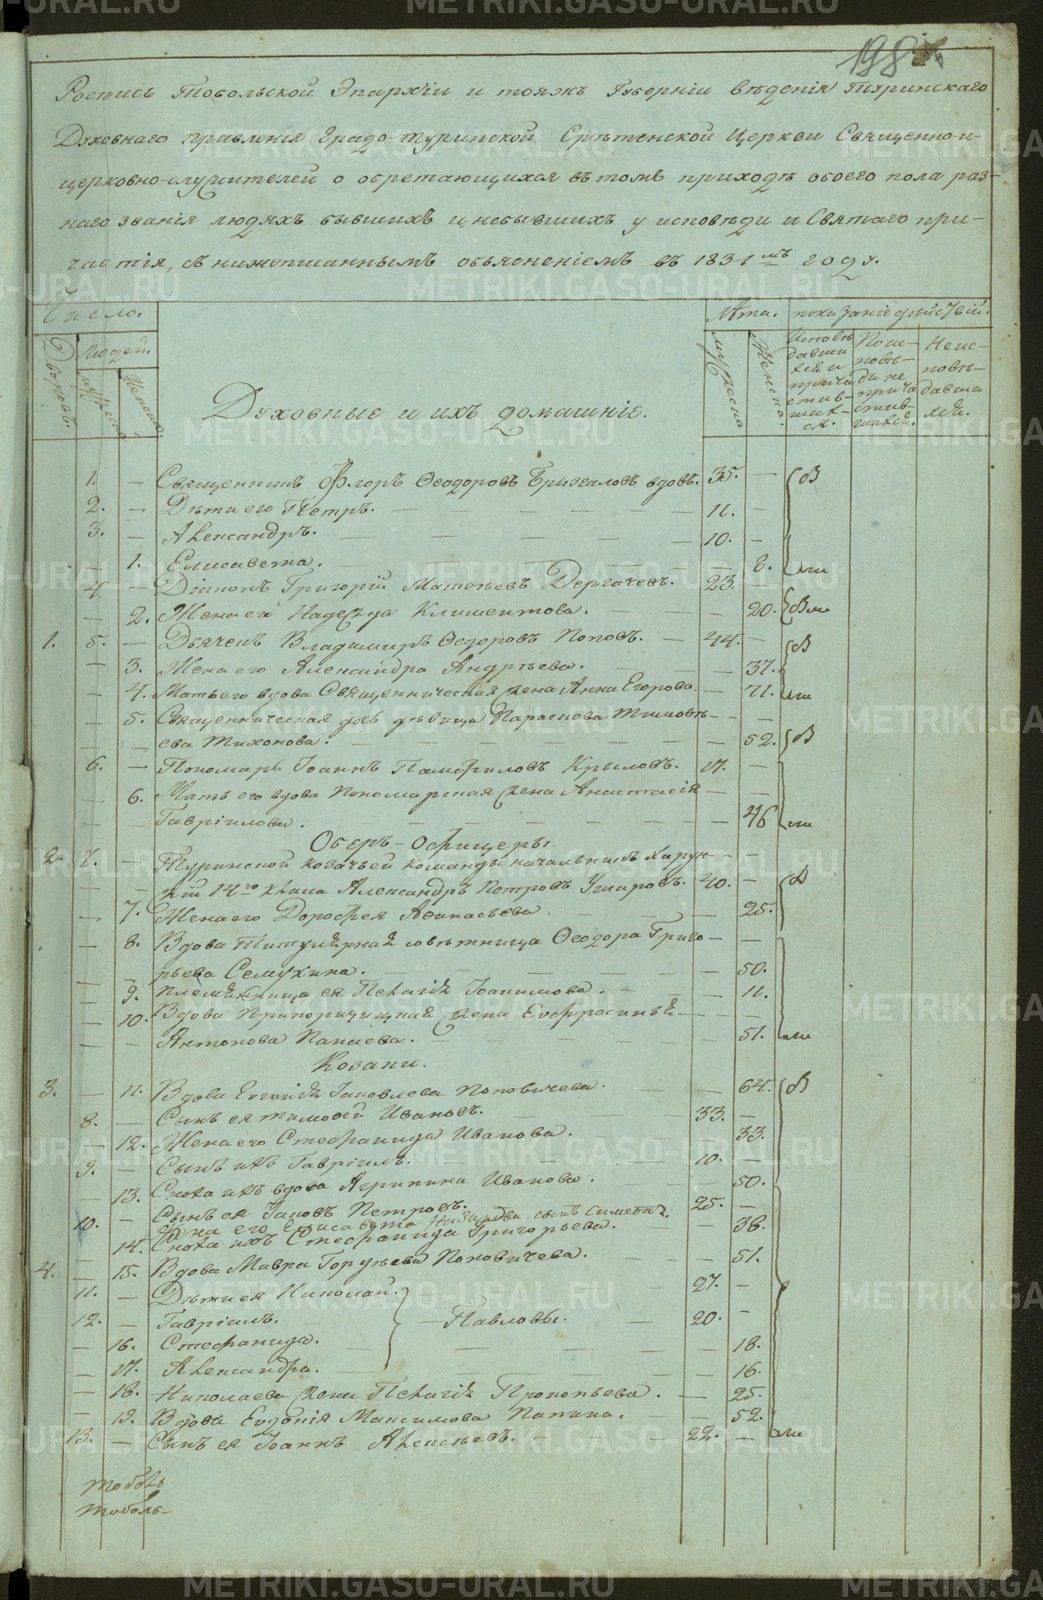 198
Роспись Тобольской Эпархіи и тояжъ Губерніи вѣденія Туринскаго
Духовнаго правленія Градо-Туринской Срѣтенской Церкви Священно-и-
церковно-служителей о обретающихся въ томъ приходѣ обоего пола раз-
наго званія людяхъ бывшихъ и небывшихъ у исповѣди и Святаго при-
частія, съ нижеписаннымъ объясненіемъ въ 1831мъ году.
Число. Лѣта. показаніе дѣйствій.
Дворовъ. Людей. мужеска Женска. мужеска Женска.
Духовные и ихъ домашніе.
1. — Священникъ Флоръ Ѳеодоровъ вдовъ. 35. —
2. — Дѣти его Петръ. 11. —
3. — Александръ. 10. —
— 1. Елисавета. — 8.
4. — Діаконъ Григорій Матѳѣевъ Дергачевъ. 23. —
— 2. Жена его Надежда Климентова. — 20.
1. 5. — Дьячекъ Владимиръ Ѳедоровъ Поповъ. 44. —
— 3. Жена его Александра Андрѣева. — 37.
— 4. Мать его вдова Священническая жена Анна Егорова. — 71.
— 5. Священническая дочь дѣвица Параскева Тимоѳѣ-
ева Тихонова. — 52.
6. — Пономарь Іоаннъ Памфиловъ Крыловъ. 17. —
— 6. Мать его вдова Пономарская жена Анастасія
Гавріилова. — 46
Оберъ-Офицеры.
2. 7. — Туринской козачьей команды начальникъ Хорун-
жій 14го класа Александръ Петровъ 40. —
— 7. Жена его Дорофея Аѳанасьева. — 25.
— 8. Вдова Титулярная совѣтница Ѳеодора Григо-
рьева Семухина. — 50.
— 9. племянница ея Пелагія Іоакимова. — 11.
— 10. Вдова Прапорщицкая жена Евфросинья
Антонова Папаева. — 51.
Козаки.
3. — 11. Вдова Евгенія Іаковлева Поповичева. — 64.
8. — Сынъ ея Тимоѳей Ивановъ. 33. —
— 12. Жена его Стефанида Иванова. — 33.
9. — Сынъ ихъ Гавріилъ. 10. —
— 13. Сноха ихъ вдова Агрипина Иванова. — 50.
10. — Сынъ ея Іаковъ Петровъ. 25. —
Жена его Елисавета Назарова сынъ Симеонъ.
— 14. Сноха ихъ Стефанида Григорьева. — 38.
4. — 15. Вдова Мавра Гордѣева Поповичева. — 51.
11. — Дѣти ея Николай. 27. —
12. — Гавріилъ. Павловы. 20. —
— 16. Стефанида. — 18.
— 17. Александра. — 16.
— 18. Николаева жена Пелагія Прокопьева. — 25.
— 19. Вдова Евдокія Максимова Папина. — 52.
13. — Сынъ ея Іоаннъ Алексѣевъ. 22. —
METRIKI.GASO-URAL.RU